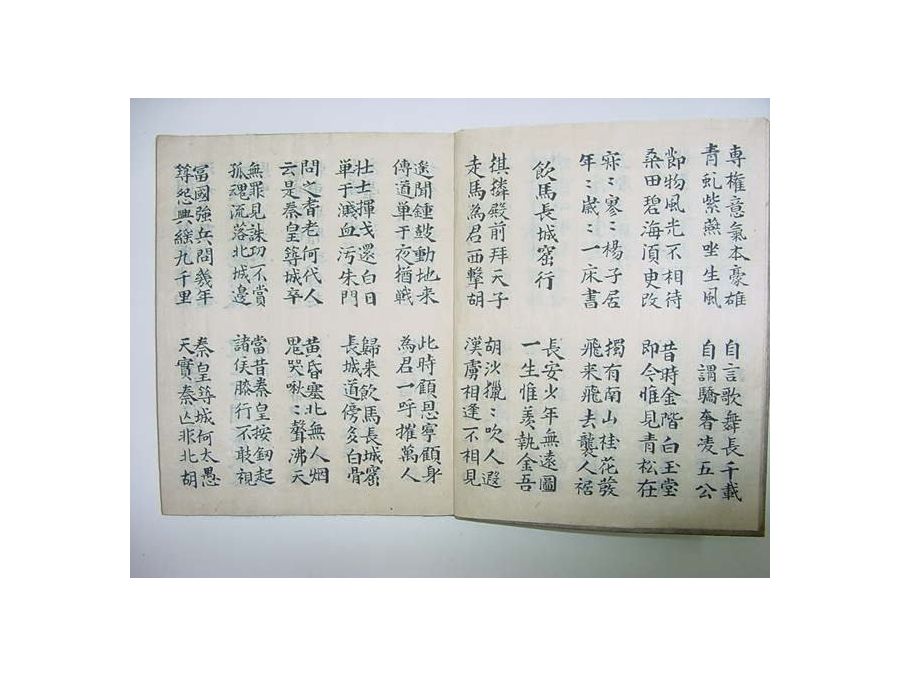 専權意氣本豪雄
青虬紫燕坐生風
自言歌舞長千載
自謂驕奢凌五公
莭物風光不相待
桑田碧海湏更改
昔時金階白玉堂
即今惟見青松在
寂〻寥〻楊子居
年〻歲〻一床書
獨有南山桂花發
飛来飛去襲人裾
飲馬長城窟行
長安少年無遠圖
一生惟羨執金吾
棋麟殿前拜天子
走馬為君西擊胡
胡沙獵〻吹人遐
漢虜相逢不相見
遙聞鍾鼓動地来
傳道単于夜猶戰
此時顧恩寧顧身
為君一呼摧萬人
壮士揮戈還白日
単于濺血污朱門
歸来飲馬長城窟
長城道傍多白骨
問之耆老何代人
云是秦皇築城卒
黄昏塞北無人烟
鬼哭啾〻聲沸天
無罪見誅功不賞
孤魂流落北城邊
當昔秦皇按劒起
諸侯膝行不敢視
冨國強兵問義年
築怨興繇九千里
秦皇築城何太愚
天實秦亡非北胡